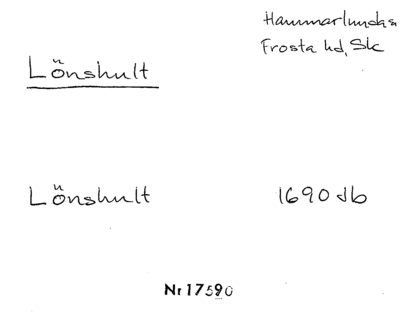 Hammarlunda sn
Frosta hd, Sk
Lönshult
Lönshult 1690 Jb
Nr 17590